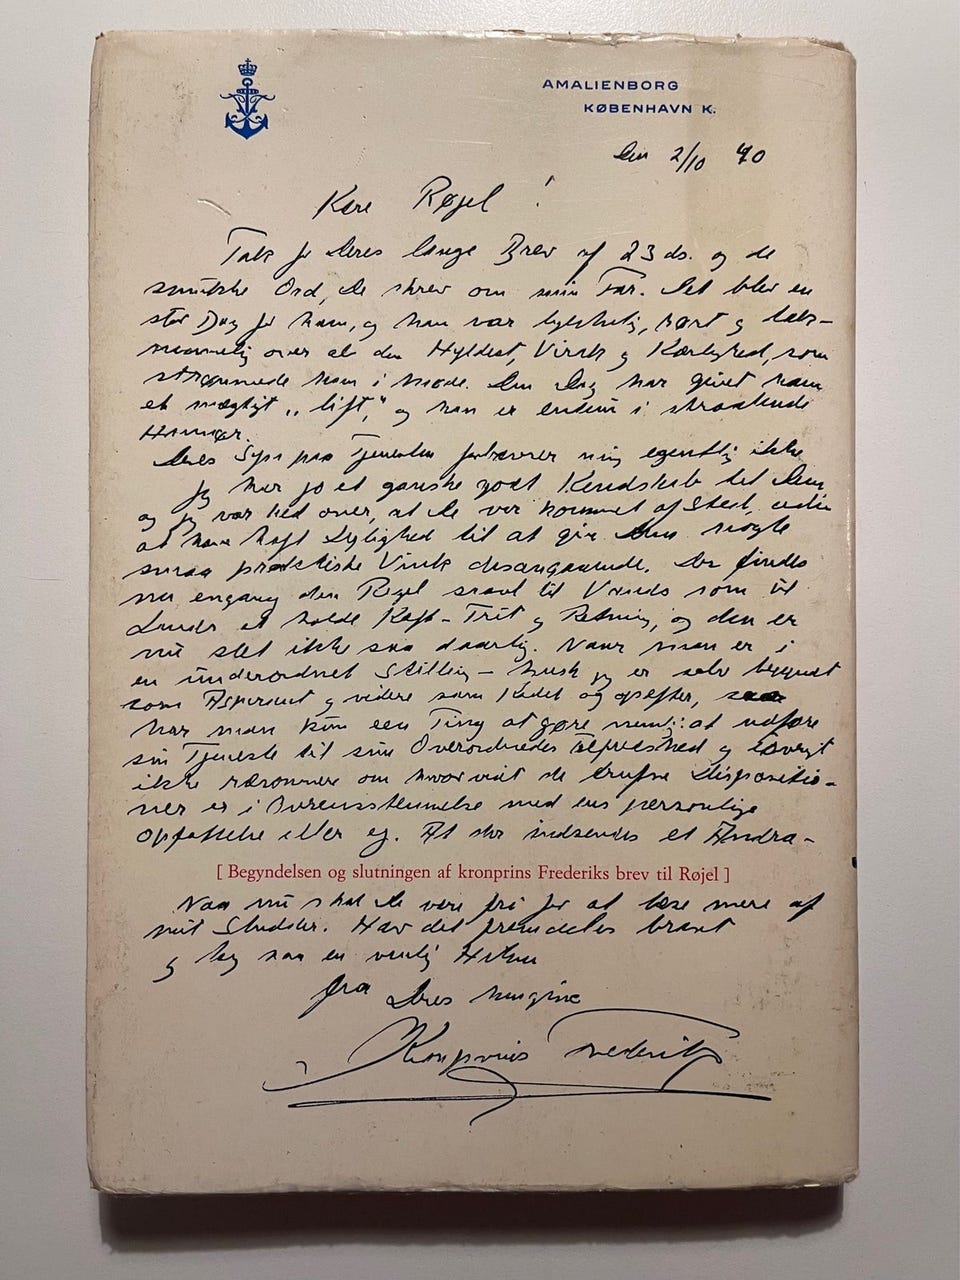 AMALIENBORG
KØBENHAVN K.
Den 2/10 40
Kære Røjel!
Tak for Deres lange Brev af 23 ds. og de
smukke Ord, De skrev om min Far. Det blev en
stor Dag for ham, og han var lykkelig, rørt og tak-
nemmelig over al den Hyldest, Virak og Kærlighed, som
strømmede ham i møde. Den Dag har givet ham
et mægtigt "lift", og han er endnu i straalende
Humør.
Deres Syn paa Tjenesten forbavser mig egentlig ikke
Jeg har jo et ganske godt Kendskab til Dem
og jeg var ked over, at De var kommet af Sted, uden
at have haft Lejlighed til at give Dem nogle
smaa praktiske Vink desangaaende. Der findes
nu engang den Regel saavel til Vands som til
Lands at holde Kæft - Trit og Retning, og den er
nu slet ikke saa daarlig. Naar man er i
en underordnet Stilling - husk jeg er selv begyndt
som Aspirant og videre som Kadet og opefter,
har man kun een Ting at gøre nemlig: at udføre
sin Tjeneste til sine Overordnedes Tilfredshed og iøvrigt
ikke ræsonnere om hvorvidt de trufne Dispositio-
ner er i Overensstemmelse med ens personlige
opfattelse eller ej. At der indsendes et Andra-
[ Begyndelsen og slutningen af kronprins Frederiks brev til Røjel ]
Naa nu skal De være fri for at læse mere af
mit Sludder. Hav det fremdeles bravt
og tag saa en venlig Hilsen
fra Deres hengivne
Kronprins Frederik